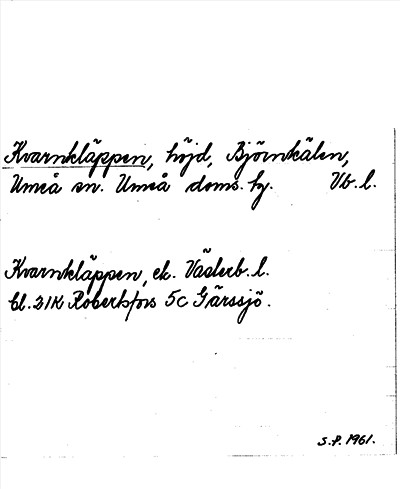 Kvarnkläppen, höjd, Björnkälen,
Umeå sn. Umeå doms. hg. Vb. l.
Kvarnkläppen, ek. Västerb. l.
Bl. 21K Robertsfors 5c Gärssjö.
S.P. 1961.